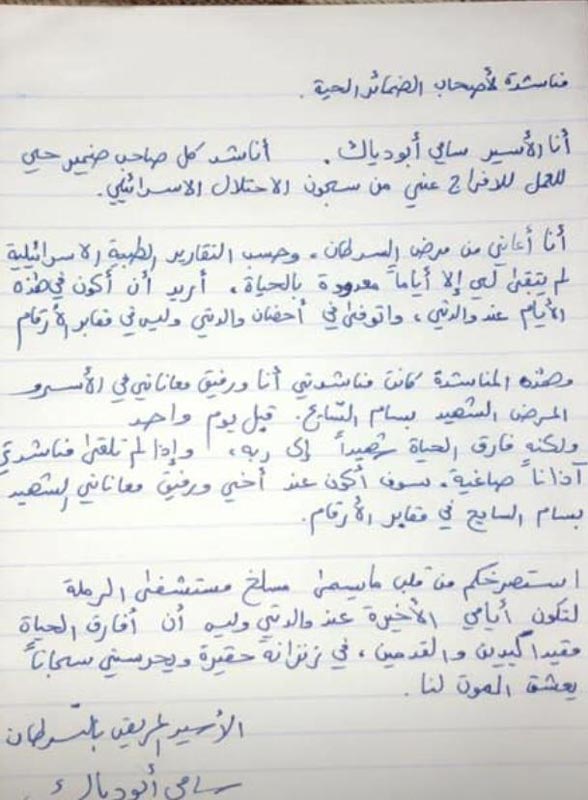 مناشدة لأصحاب الضمائر الحية.
أنا الأسير سامي أبودياك. أناشد كل صاحب ضمير حي
للعمل للافراج عني من سجون الاحتلال الاسرائيلي.
أنا أعاني من مرض السرطان، وحسب التقارير الطبية الاسرائيلية
لم يتبقى لي إلا أياماً معدودة بالحياة، أريد أن أكون في هذه
الأيام عند والدتي، واتوفى في أحضان والدتي وليس في مقابر الأرقام
وهذه المناشدة كانت مناشدتي أنا ورفيق معاناتي في الأسر و
المرض الشهيد بسام السّايح. قبل يوم واحد
ولكنه فارق الحياة شهيداً إلى ربه، وإذا لم تلقى مناشدتي
آذاناً صاغية. سوف أكون عند أخي ورفيق معاناتي الشهيد
بسام السايح في مقابر الأرقام.
استصرخكم من قلب ما يسمى مسلخ مستشفى الرملة
لتكون أيامي الأخيرة عند والدتي وليس أن أفارق الحياة
مقيد اليدين والقدمين، في زنزانة حقيرة ويحرسني سجاناً
يعشق الموت لنا.
الأسير المريض بالسّرطان
سامي أبودياك